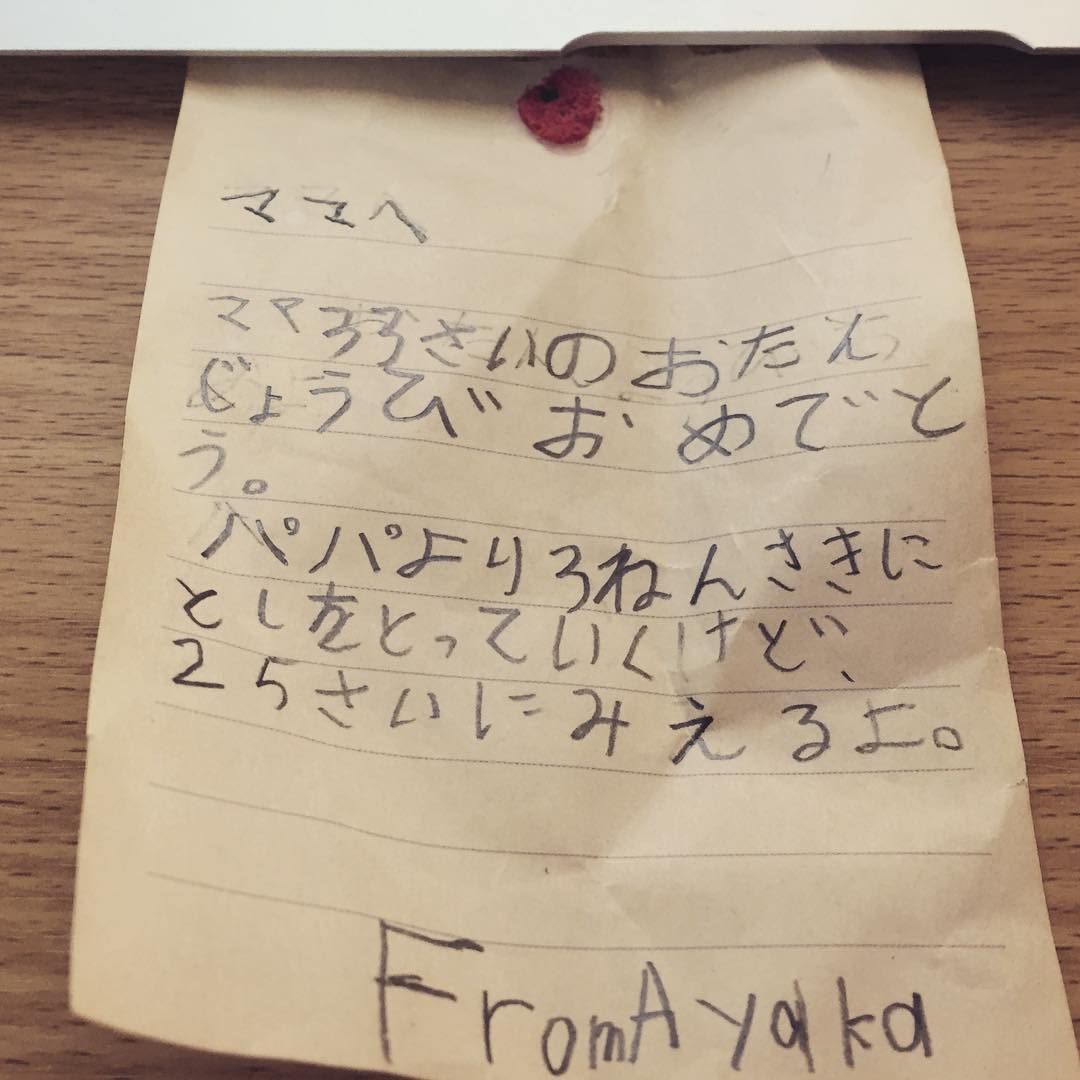 ママへ
ママ33さいのおたん
じょうびおめでと
う。
パパより3ねんさきに
としをとっていくけど、
25さいにみえるよ。
From Ayaka